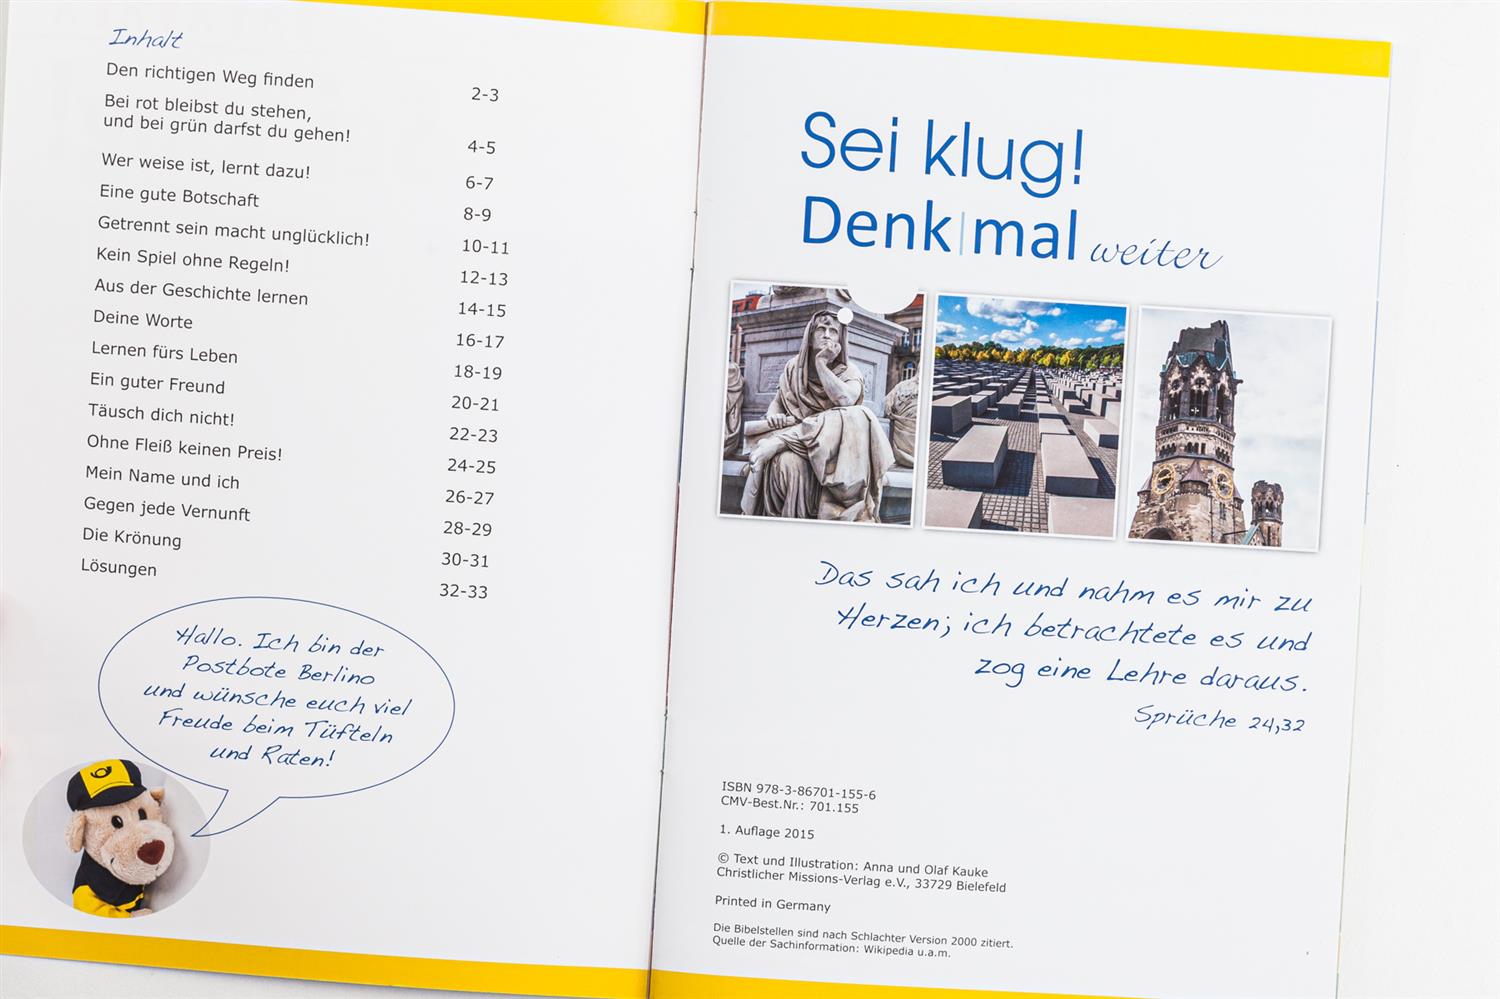 Inhalt
Den richtigen Weg finden 2-3
Bei rot bleibst du stehen,
und bei grün darfst du gehen! 4-5
Wer weise ist, lernt dazu! 6-7
Eine gute Botschaft 8-9
Getrennt sein macht unglücklich! 10-11
Kein Spiel ohne Regeln! 12-13
Aus der Geschichte lernen 14-15
Deine Worte 16-17
Lernen fürs Leben 18-19
Ein guter Freund 20-21
Täusch dich nicht! 22-23
Ohne Fleiß keinen Preis! 24-25
Mein Name und ich 26-27
Gegen jede Vernunft 28-29
Die Krönung 30-31
Lösungen 32-33
Hallo. Ich bin der
Postbote Berlino
und wünsche euch viel
Freude beim Tüfteln
und Raten!
Sei klug!
Denk|mal weiter
Das sah ich und nahm es mir zu
Herzen; ich betrachtete es und
zog eine Lehre daraus.
Sprüche 24,32
ISBN 978-3-86701-155-6
CMV-Best.Nr.: 701.155
1. Auflage 2015
© Text und Illustration: Anna und Olaf Kauke
Christlicher Missions-Verlag e.V., 33729 Bielefeld
Printed in Germany
Die Bibelstellen sind nach Schlachter Version 2000 zitiert.
Quelle der Sachinformation: Wikipedia u.a.m.